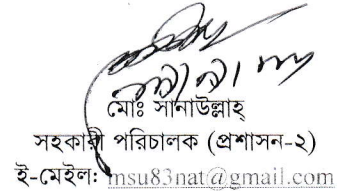 মোঃ সানাউল্লাহ্
সহকারী পরিচালক (প্রশাসন-২)
ই-মেইল: msu83nat@gmail.com